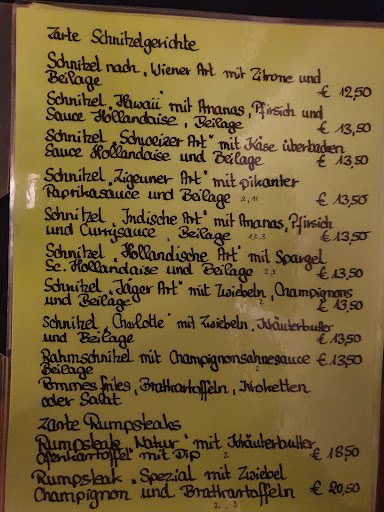 Zarte Schnitzelgerichte
Schnitzel nach „Wiener Art" mit Zitrone und
Beilage € 12,50
Schnitzel „Hawaii" mit Ananas, Pfirsich und
Sauce Hollandaise, Beilage € 13,50
Schnitzel „Schweizer Art" mit Käse überbacken
Sauce Hollandaise und Beilage € 13,50
Schnitzel „Zigeuner Art" mit pikanter
Paprikasauce und Beilage 2,11 € 13,50
Schnitzel „Indische Art" mit Ananas, Pfirsich
und Currysauce, Beilage 1,2,3 € 13,50
Schnitzel „Holländische Art" mit Spargel
Sc. Hollandaise und Beilage 2,3 € 13,50
Schnitzel „Jäger Art" mit Zwiebeln, Champignons
und Beilage 2 € 13,50
Schnitzel „Charlotte" mit Zwiebeln, Kräuterbutter
und Beilage € 13,50
Rahmschnitzel mit Champignonsahnesauce € 13,50
Beilage 2
Pommes frites, Bratkartoffeln, Kroketten
oder Salat
Zarte Rumpsteaks
Rumpsteak „Natur" mit Kräuterbutter,
Ofenkartoffel mit Dip 2 € 18,50
Rumpsteak „Spezial mit Zwiebel
Champignon und Bratkartoffeln € 20,50
2,3